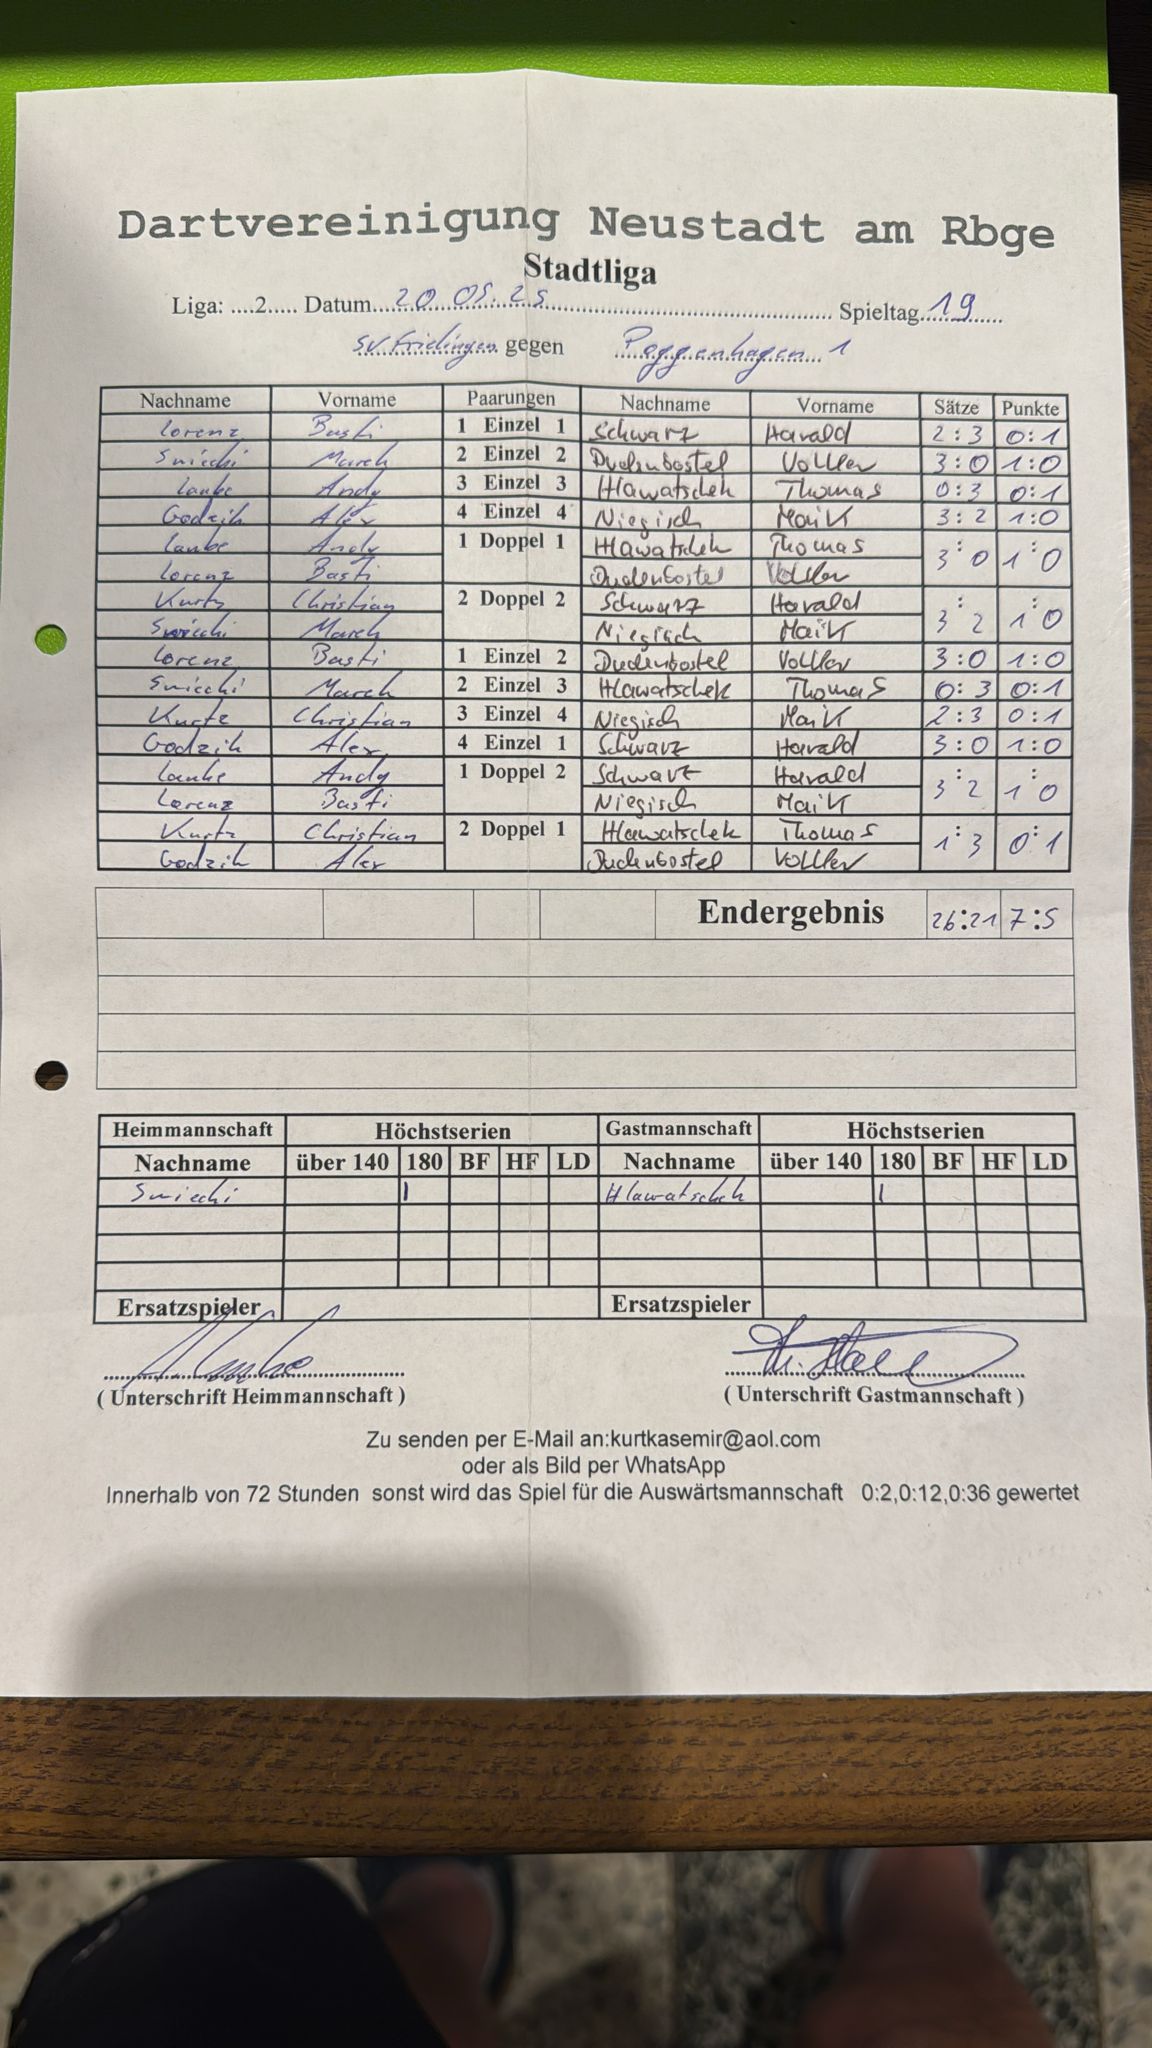 Dartvereinigung Neustadt am Rbge
Stadtliga
Liga: ....2..... Datum...20.05.25............ Spieltag..19........
SV Frielingen gegen Poggenhagen 1
Nachname Vorname Paarungen Nachname Vorname Sätze Punkte
Lorenz Basti 1 Einzel 1 Schwarz Harald 2:3 0:1
March 2 Einzel 2 Dudenbostel Volker 3:0 1:0
Laube Andy 3 Einzel 3 Hlawatschek Thomas 0:3 0:1
Godzik Alex 4 Einzel 4 Niegisch Maik 3:2 1:0
Laube Andy 1 Doppel 1 Hlawatschek Thomas 3:0 1:0
Lorenz Basti Dudenbostel Volker
Kurtz Christian 2 Doppel 2 Schwarz Harald 3:2 1:0
March Niegisch Maik
Lorenz Basti 1 Einzel 2 Dudenbostel Volker 3:0 1:0
March 2 Einzel 3 Hlawatschek Thomas 0:3 0:1
Kurtz Christian 3 Einzel 4 Niegisch Maik 2:3 0:1
Godzik Alex 4 Einzel 1 Schwarz Harald 3:0 1:0
Laube Andy 1 Doppel 2 Schwarz Harald 3:2 1:0
Lorenz Basti Niegisch Maik
Kurtz Christian 2 Doppel 1 Hlawatschek Thomas 1:3 0:1
Godzik Alex Dudenbostel Volker
Endergebnis 26:21 7:5
Heimmannschaft Höchstserien Gastmannschaft Höchstserien
Nachname über 140 180 BF HF LD Nachname über 140 180 BF HF LD
I Hlawatschek I
Ersatzspieler Ersatzspieler
( Unterschrift Heimmannschaft ) ( Unterschrift Gastmannschaft )
Zu senden per E-Mail an:kurtkasemir@aol.com
oder als Bild per WhatsApp
Innerhalb von 72 Stunden sonst wird das Spiel für die Auswärtsmannschaft 0:2,0:12,0:36 gewertet